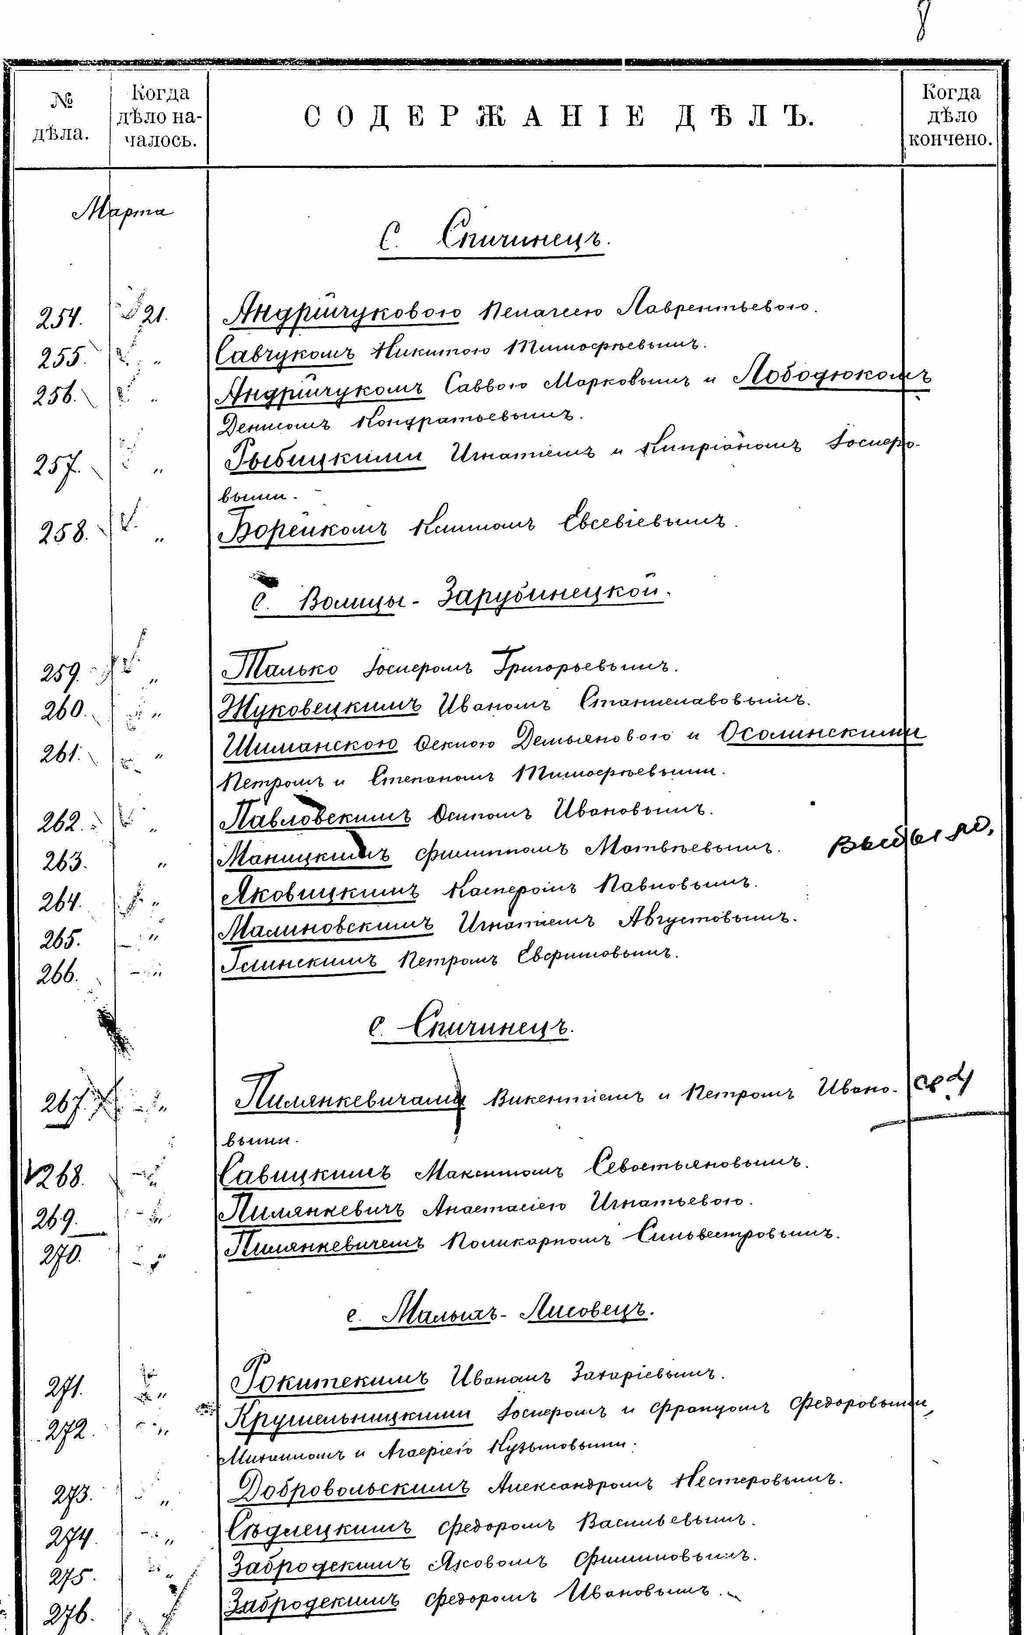 8
№ дѣла.
Когда дѣло на-чалось.
СОДЕРЖАНІЕ ДѢЛЪ.
Когда дѣло кончено.
Марта
С. Спичинецъ.
254. 21. Андрійчуковою Пелагеею Лаврентьевою.
255. „ Савчукомъ Никитою Тимофѣевымъ.
256. „ Андрійчукомъ Саввою Марковымъ и Лободюкомъ
Денисомъ Кондратьевымъ.
257. „ Рыбицкими Игнатіемъ и Кипріаномъ Іосифо-
выми.
258. „ Борейкомъ Климомъ Евсевіевымъ.
с. Волицы-Зарубинецкой.
259. „ Талько Іосифомъ Григорьевымъ.
260. „ Жуковецкимъ Иваномъ Станиславовымъ.
261. „ Шиманскою Феклою Демьяновою и Осолинскими
Петромъ и Степаномъ Тимофѣевыми.
262. „ Павловскимъ Осипомъ Ивановымъ.
263. „ Маницкимъ Филиппомъ Матвѣевымъ. Выбыло,
264. „ Яковицкимъ Касперомъ Павловымъ.
265. „ Малиновскимъ Игнатіемъ Августовымъ.
266. „ Глинскимъ Петромъ Евфимовымъ.
с. Спичинецъ.
267. „ Пилянкевичами Викентіемъ и Петромъ Ивано-
выми.
268. „ Савицкимъ Максимомъ Севостьяновымъ.
269. „ Пилянкевичъ Анастасіею Игнатьевою.
270. „ Пилянкевичемъ Поликарпомъ Сильвестровымъ.
с. Малыхъ-Лисовецъ.
271. „ Рокитскимъ Иваномъ Захаріевымъ.
272. „ Крушельницкими Іосифомъ и Францомъ Федоровыми,
Михаиломъ и Агафіею Кузьмовыми.
273. „ Добровольскимъ Александромъ Нестеровымъ.
274. „ Сѣдлецкимъ Федоромъ Васильевымъ.
275. „ Забродскимъ Яковомъ Филипповымъ.
276. „ Забродскимъ Федоромъ Ивановымъ.